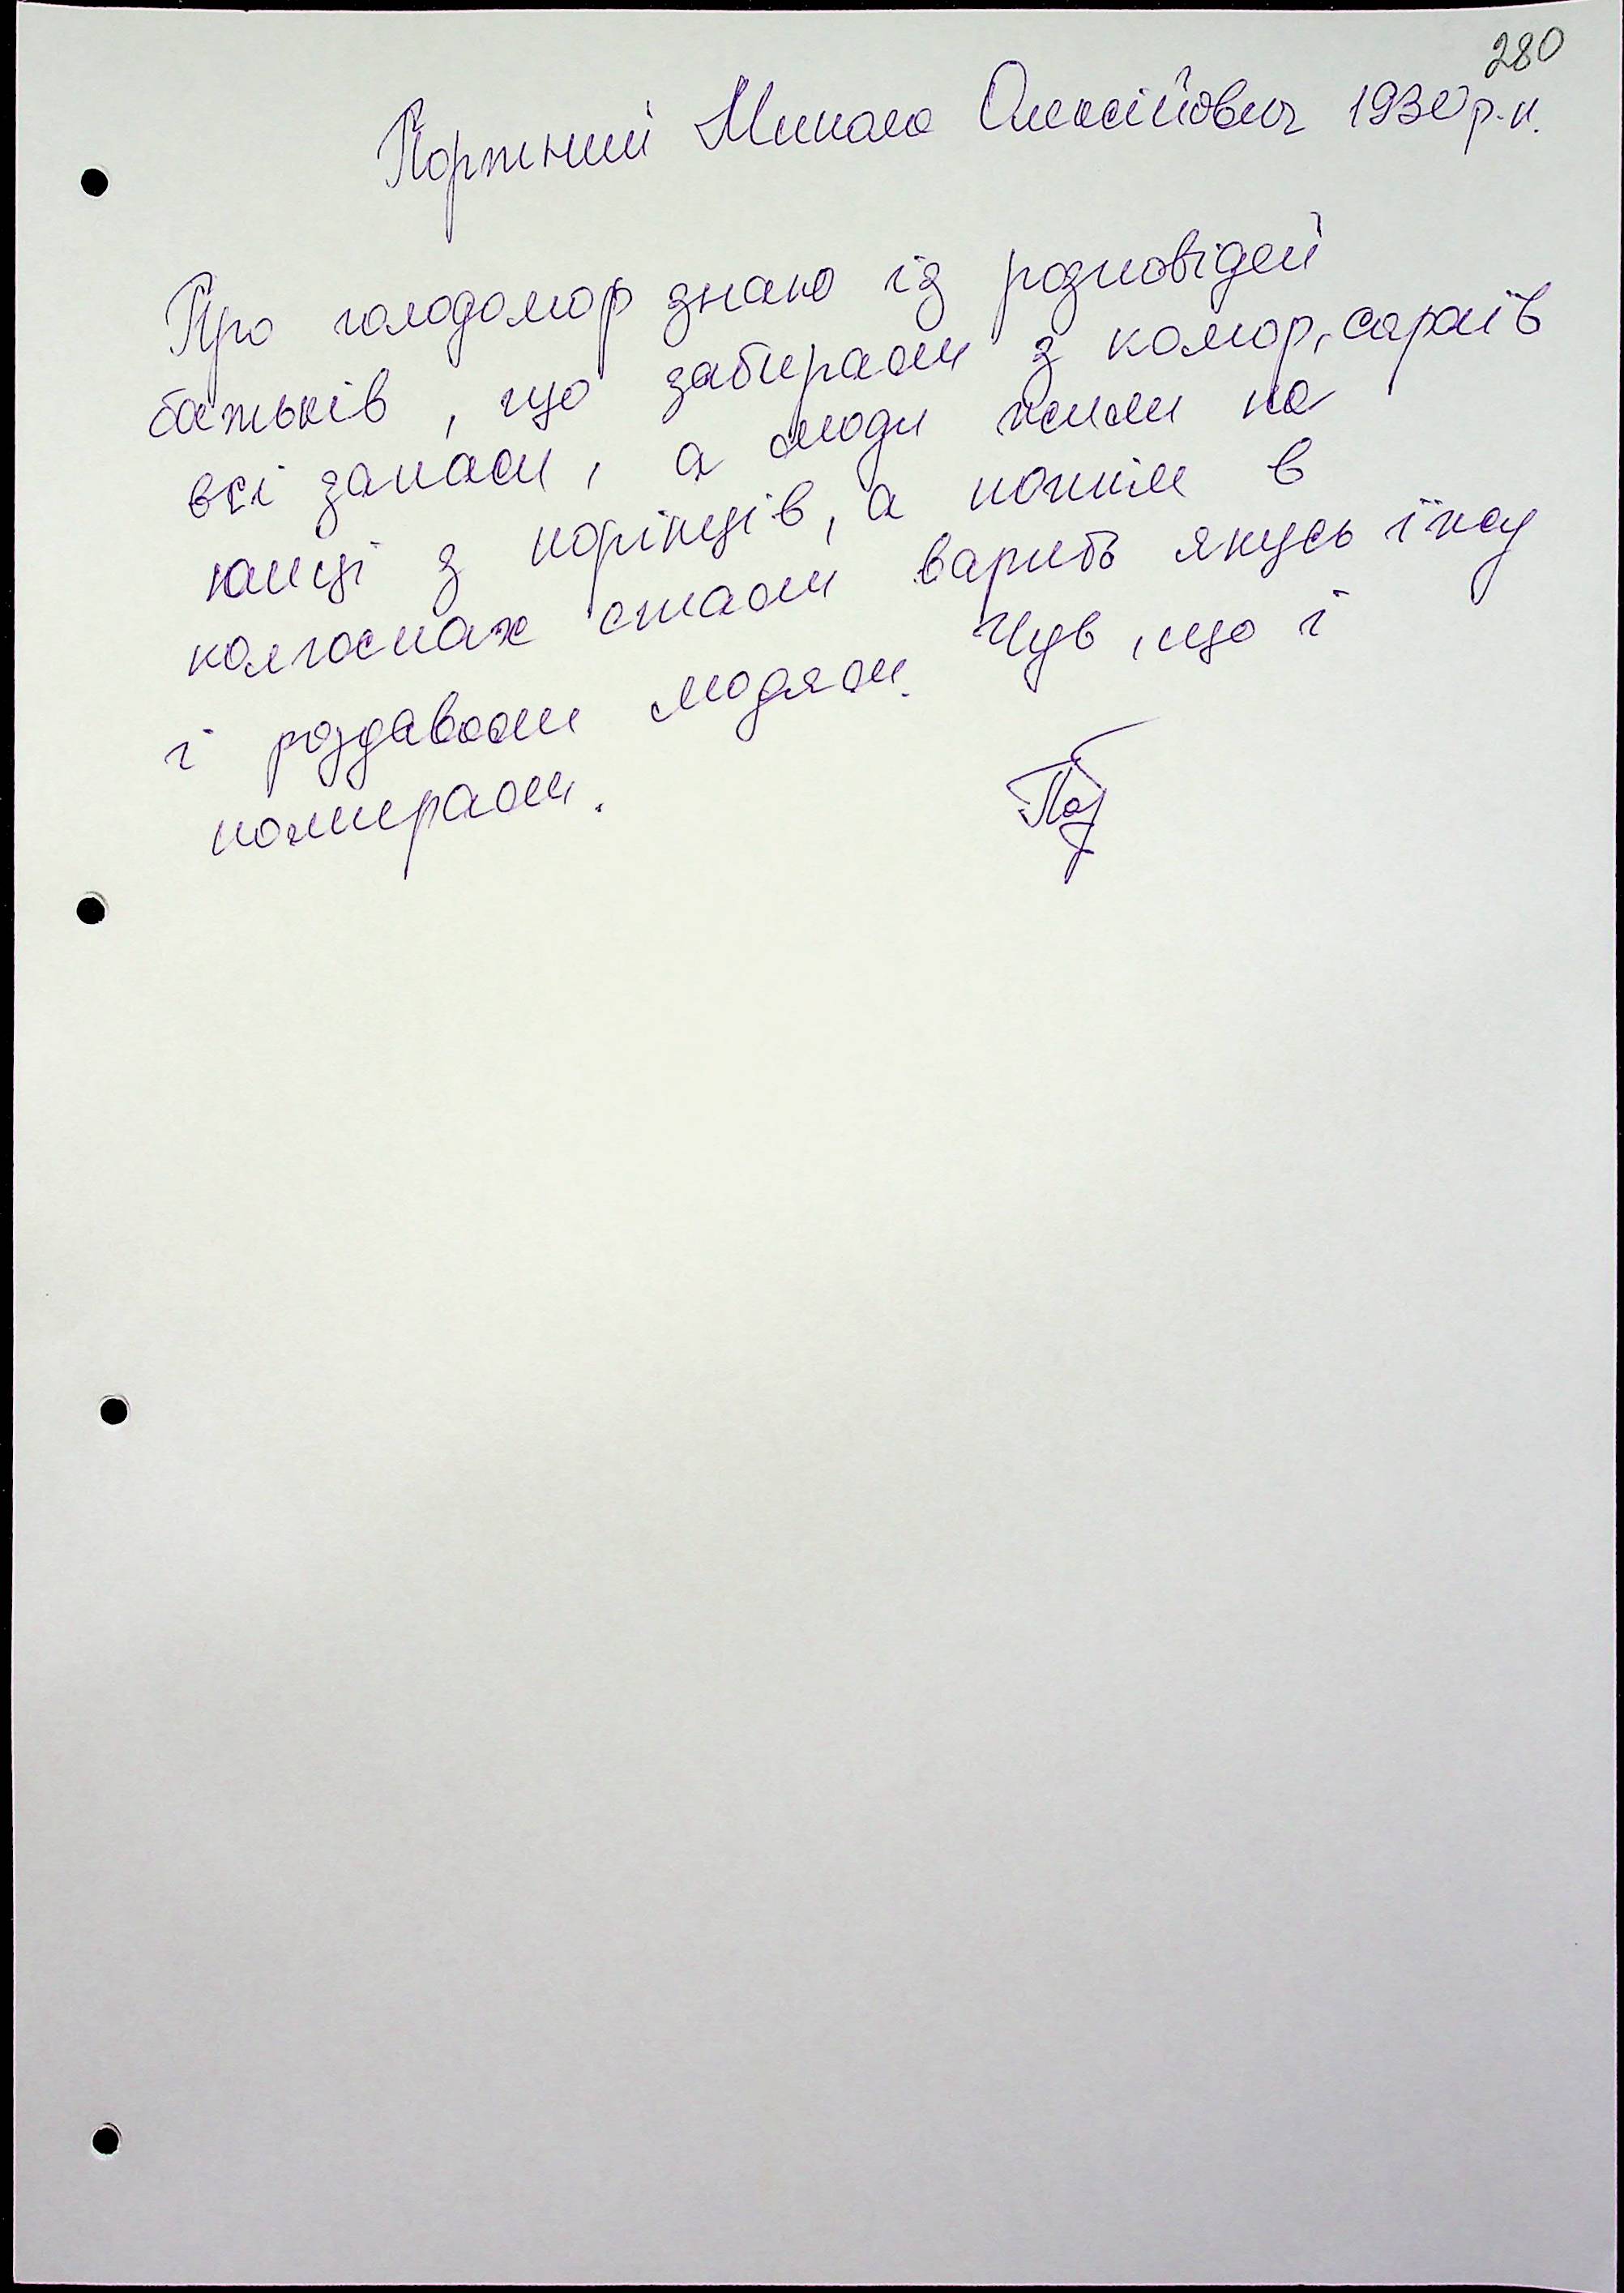 280
Портний Микола Олексійович 1930 р.н.
Про голодомор знаю із розповідей
батьків, що забирали з комор, сараїв
всі запаси, а люди жили на
юшці з корінців, а потім в
колгоспах стали варить якусь їжу
і роздавали людям. Чув, що і
помирали.